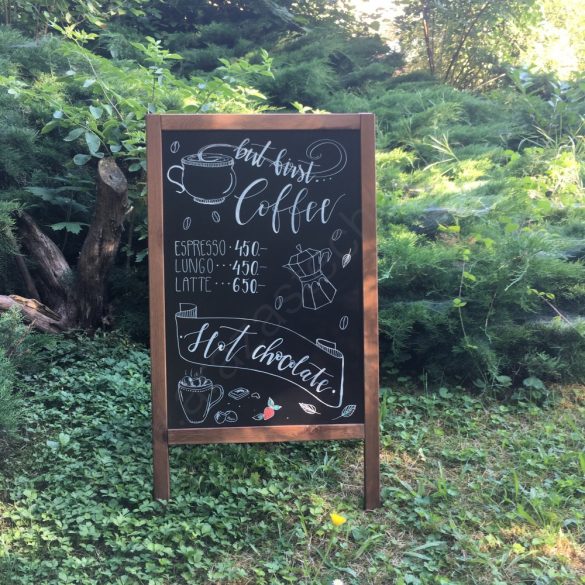 but first...
Coffee
ESPRESSO · 450.-
LUNGO ··· 450.-
LATTE ··· 650.-
Hot chocolate.